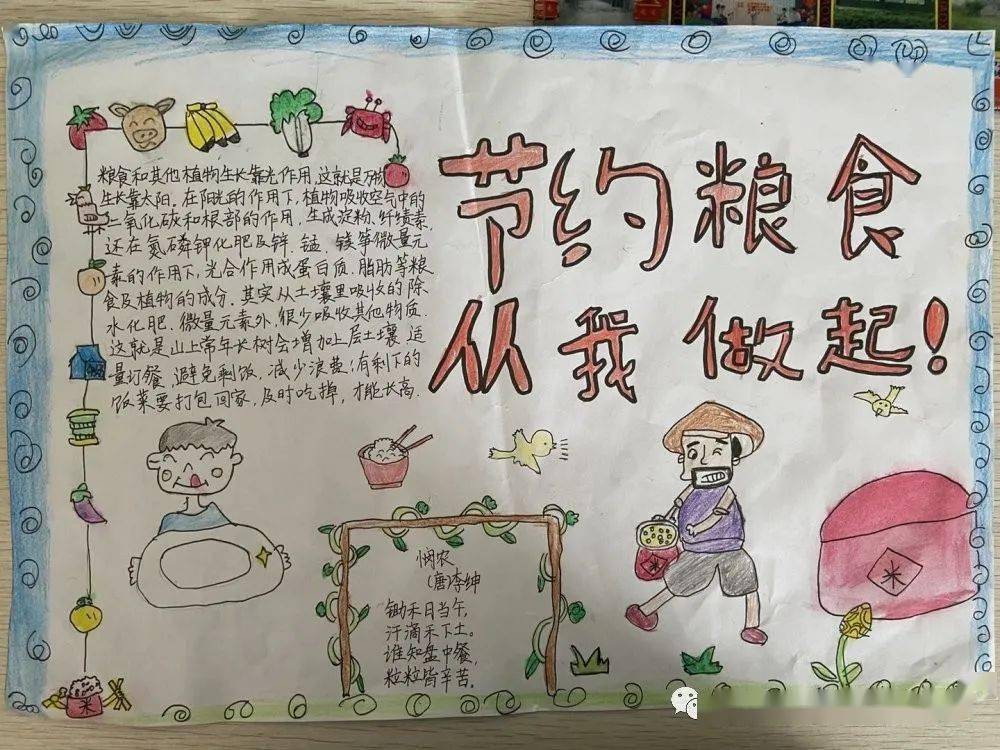 节约粮食
从我做起!
粮食和其他植物生长靠光作用.这就是万物
生长靠太阳.在阳光的作用下,植物吸收空气中的
二氧化碳和根部的作用.生成淀粉.纤绩素.
还在氮磷钾化肥及锌 锰 镁等微量元
素的作用下,光合作用成蛋白质.脂肪等粮
食及植物的成分.其实从土壤里吸收的除
水化肥.微量元素外,很少吸收其他物质.
这就是山上常年长树会增加上层土壤.适
量订餐 避免剩饭,减少浪费;有剩下的
饭菜要打包回家,及时吃掉,才能长高.
悯农
(唐)李绅
锄禾日当午,
汗滴禾下土。
谁知盘中餐,
粒粒皆辛苦.
米
米